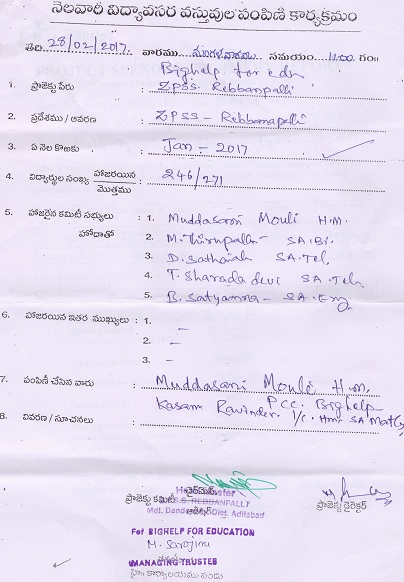 నెలవారీ విద్యావసర వస్తువుల పంపిణి కార్యక్రమం
తేది. 28/02/2017. వారము.... మంగళవారము సమయం.... 12:00 గం॥
Bighelp for edn
1. ప్రాజెక్టు పేరు : ZPSS. Rebbanpalli
2. ప్రదేశము / ఆవరణ : ZPSS - Rebbanapalli
3. ఏ నెల కొఱకు : Jan - 2017
4. విద్యార్థుల సంఖ్య హాజరయిన / మొత్తము : 246/271
5. హాజరైన కమిటీ సభ్యులు : 1. Muddasani Mouli H.M.
హోదాతో 2. M. Thirupathi - SA. Bi.
3. D. Sathaiah SA. Tel,
4. T. Sharada devi SA. Tel
5. B. Satyamma - SA. Eng
6. హాజరయిన ఇతర ముఖ్యులు : 1. -
2. -
3. -
7. పంపిణీ చేసిన వారు : Muddasani Mouli H.M.
Kasam Ravinder PCC. Bighelp
8. వివరణ / సూచనలు : I/c. Hm. SA Mat
ప్రాజెక్టు కమిటీ ఛైర్మెన్ ప్రాజెక్టు డైరెక్టర్
Headmaster
Z.P.S.S. REBBANPALLY
Mdl. Dandepally Dist. Adilabad
ఆడిటర్
For BIGHELP FOR EDUCATION
M. Sarojini
MANAGING TRUSTEE
హై. కార్యాలయము పందు